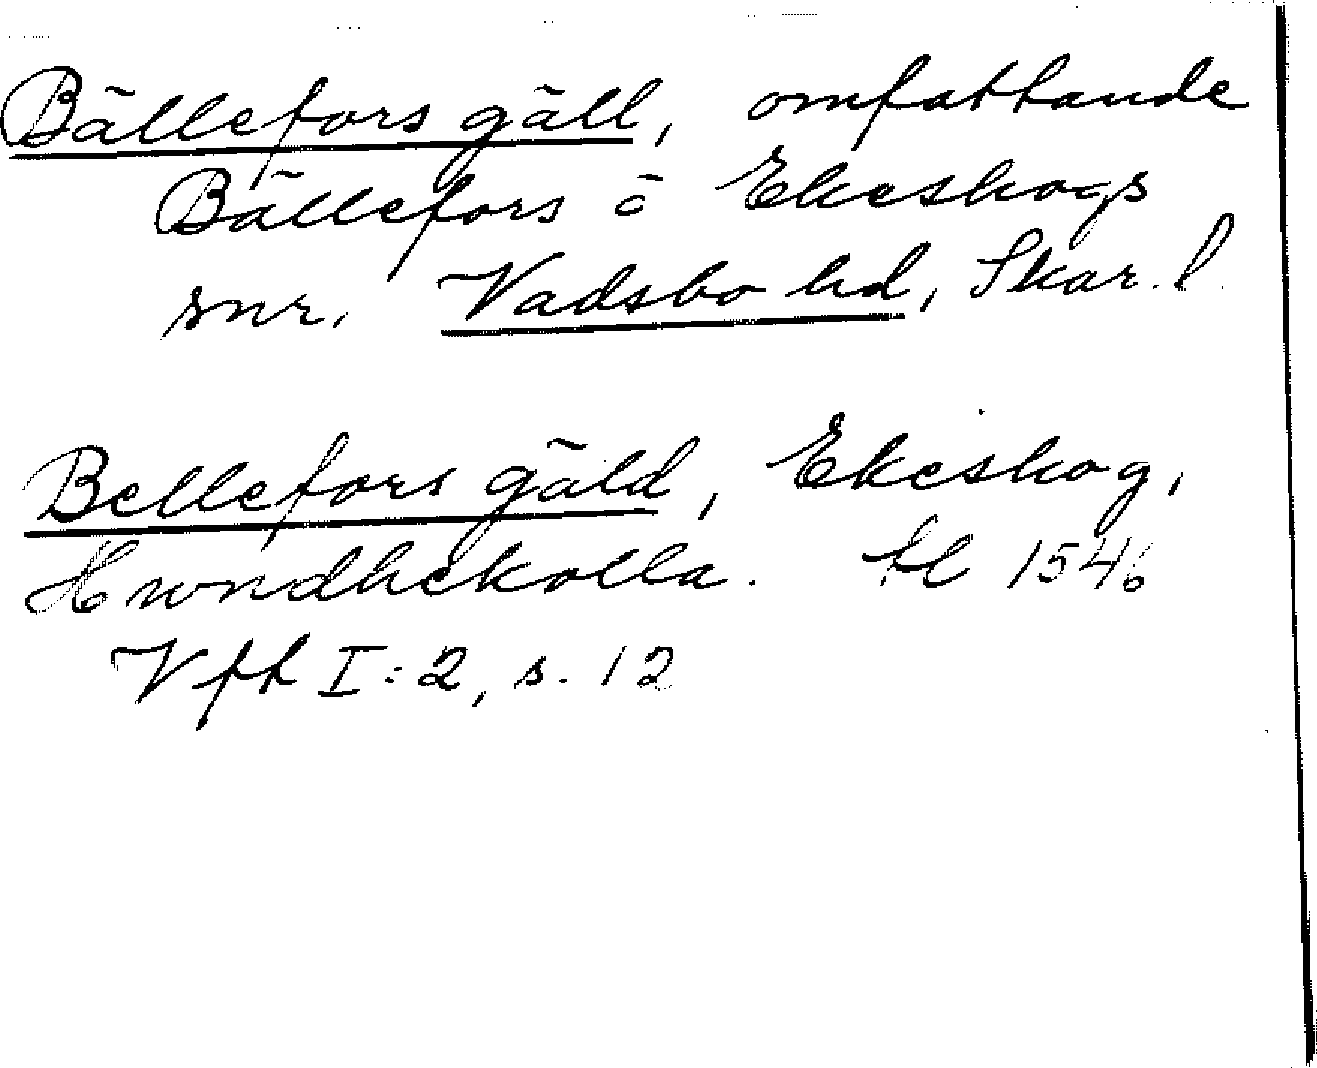 Bällefors gäll, omfattande
Bällefors ō Ekeskogs
snr, Vadsbo hd, Skar. l.
Bellefors gäld, Ekeskog,
Hwndhekolla. tl 1546
Vfh I:2, s. 12